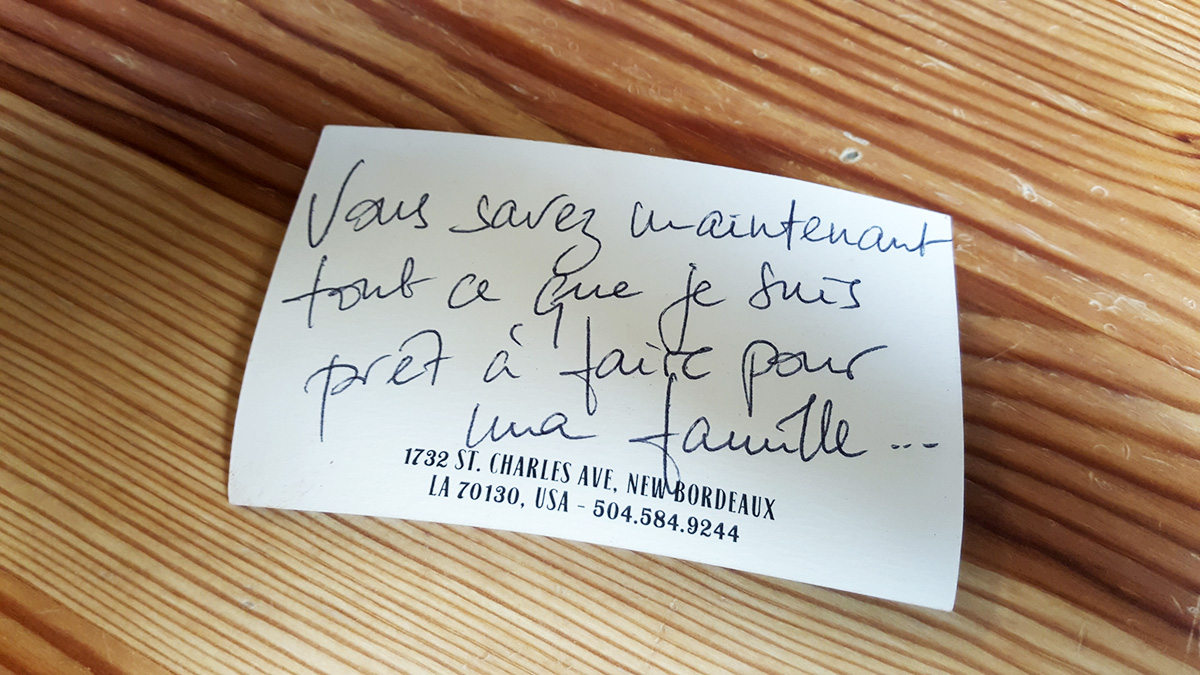 Vous savez maintenant
tout ce que je suis
prêt à faire pour
ma famille ...
1732 ST. CHARLES AVE, NEW BORDEAUX
LA 70130, USA - 504.584.9244